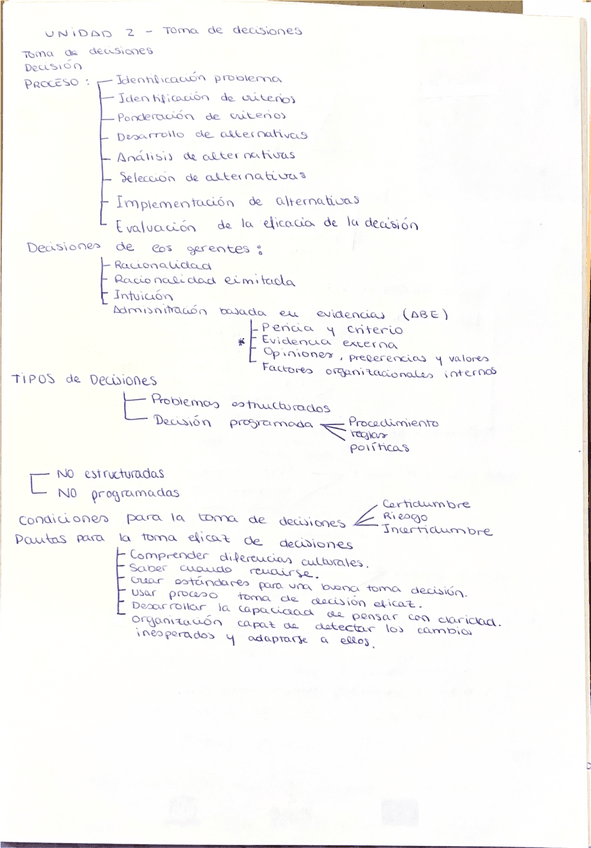 UNIDAD 2 - Toma de decisiones
Toma de decisiones
Decisión
PROCESO:
Identificación problema
Identificación de criterios
Ponderación de criterios
Desarrollo de alternativas
Análisis de alternativas
Selección de alternativas
Implementación de alternativas
Evaluación de la eficacia de la decisión
Decisiones de los gerentes:
Racionalidad
Racionalidad limitada
Intuición
Administración basada en evidencias (ABE)
Pericia y criterio
* Evidencia externa
Opiniones, preferencias y valores
Factores organizacionales internos
TIPOS de Decisiones
Problemas estructurados
Decisión programada
Procedimiento
reglas
políticas
NO estructuradas
NO programadas
Condiciones para la toma de decisiones
Certidumbre
Riesgo
Incertidumbre
Pautas para la toma eficaz de decisiones
Comprender diferencias culturales.
Saber cuando rendirse.
Crear estándares para una buena toma decisión.
Usar proceso toma de decisión eficaz.
Desarrollar la capacidad de pensar con claridad.
Organización capaz de detectar los cambios
inesperados y adaptarse a ellos.